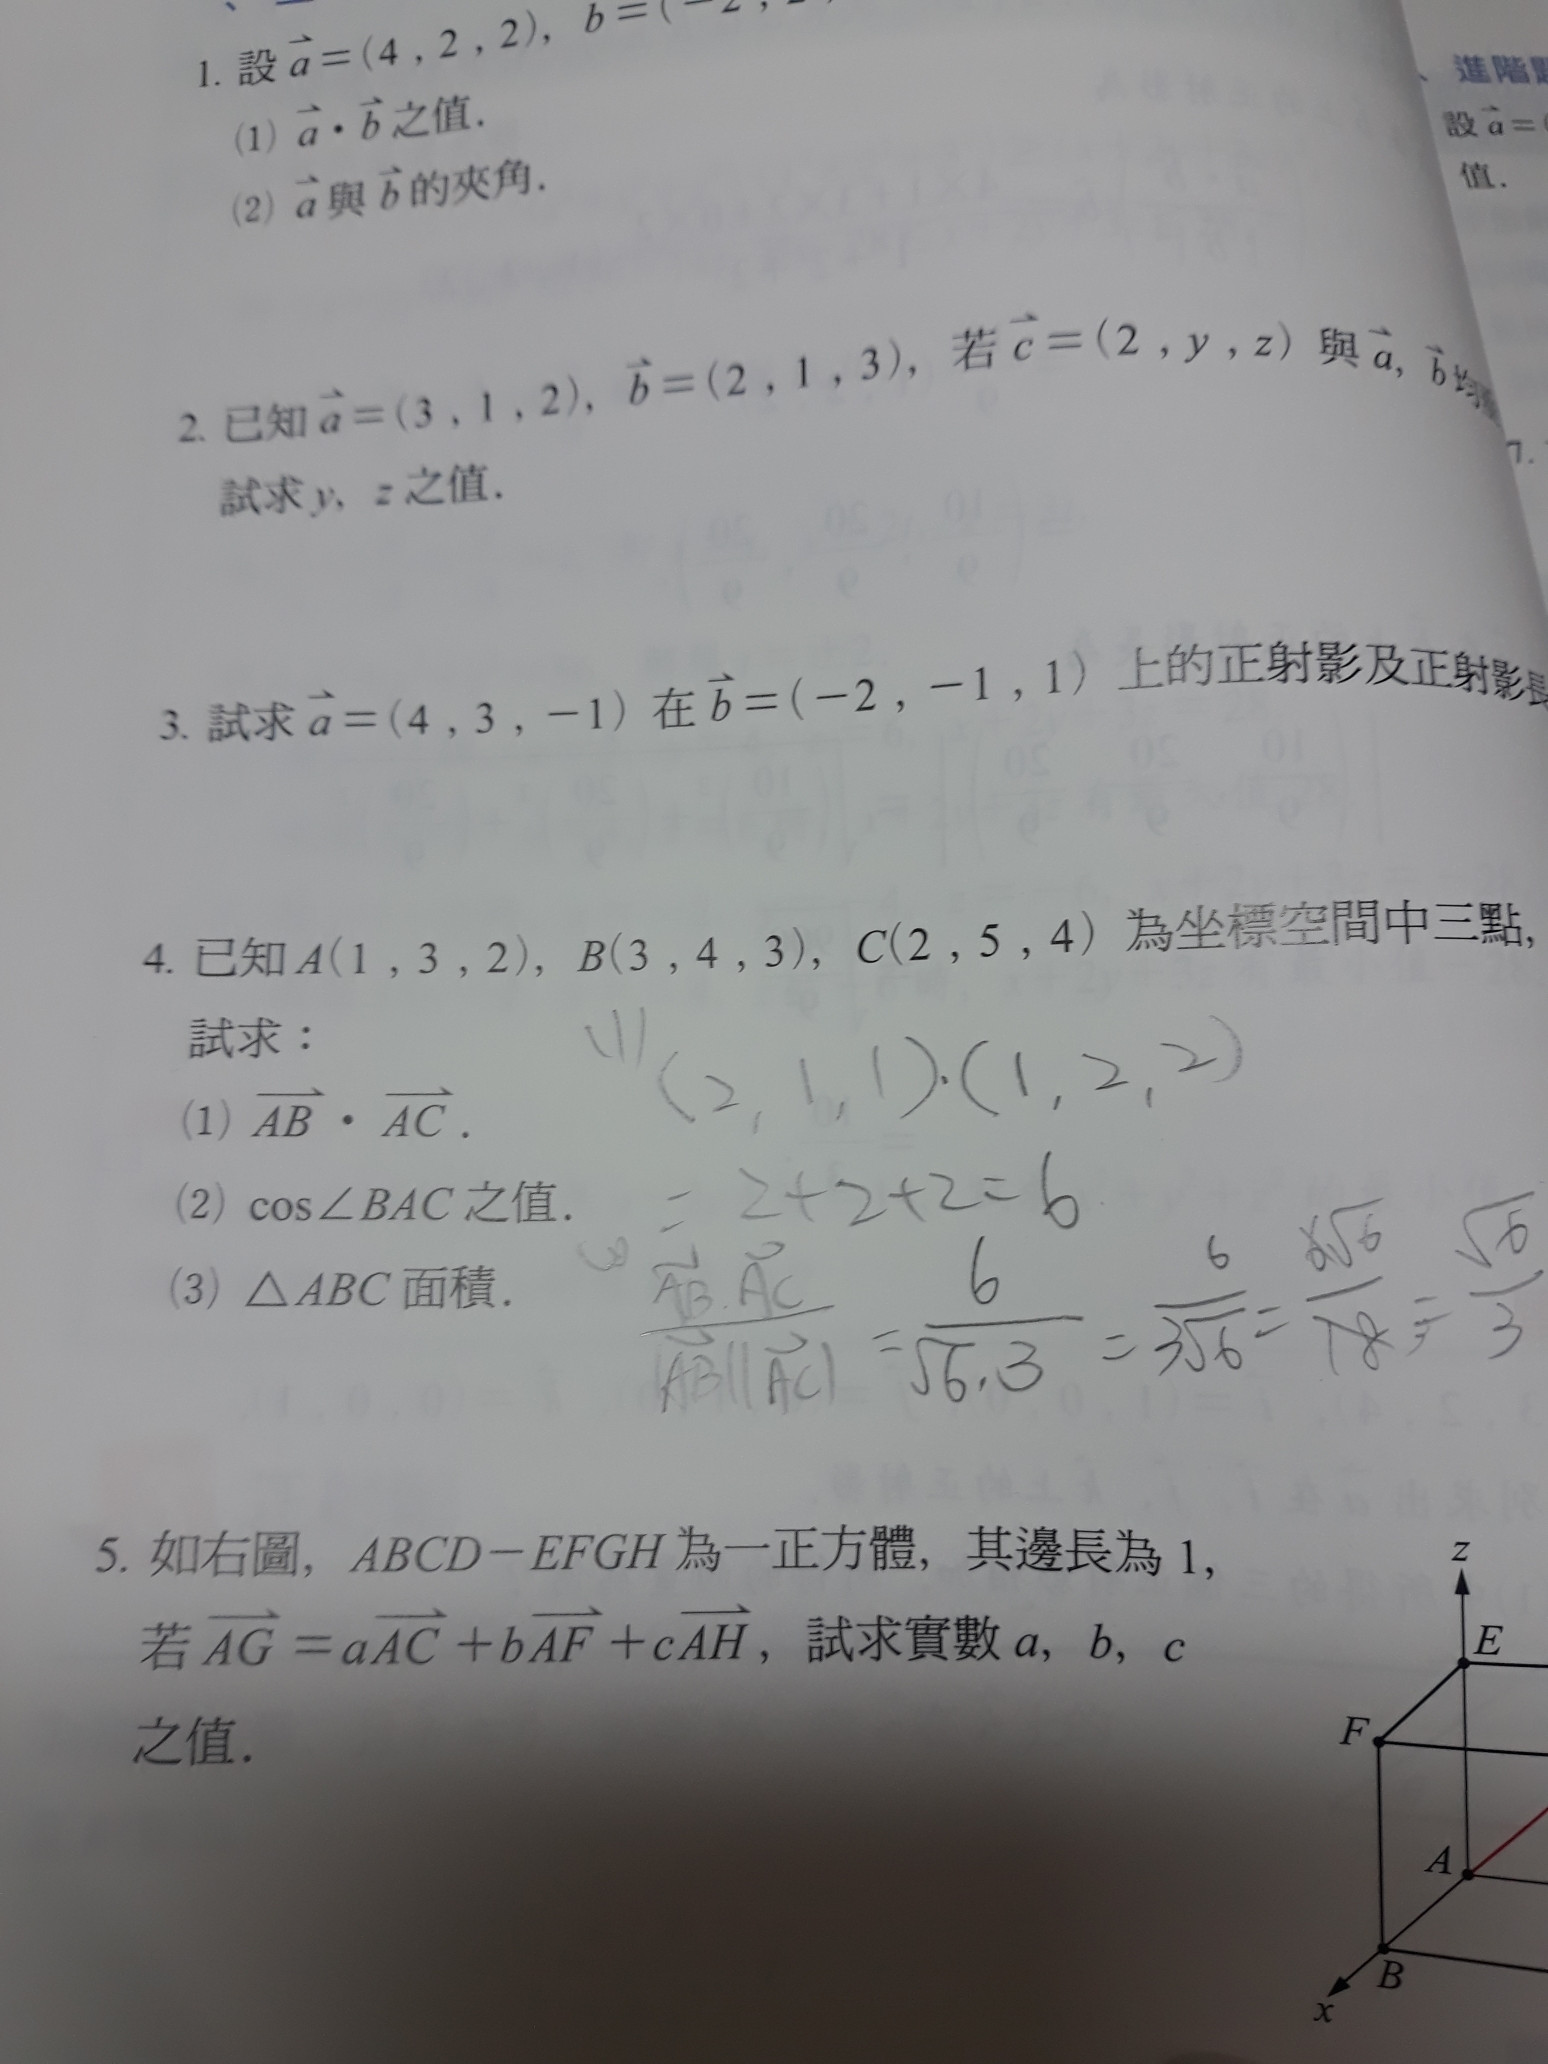 1. 設 a=(4,2,2), b=(-2,
(1) a・b之值.
(2) a與b的夾角.
、進階
設 a=(
值.
2. 已知 a=(3,1,2), b=(2,1,3), 若 c=(2,y,z) 與 a, b 均
試求 y, z 之值.
3. 試求 a=(4,3,-1) 在 b=(-2,-1,1) 上的正射影及正射影長
4. 已知 A(1,3,2), B(3,4,3), C(2,5,4) 為坐標空間中三點,
試求：
(1) (2,1,1)·(1,2,2)
(1) AB・AC.
(2) cos∠BAC 之值.
= 2+2+2=6
(3) △ABC 面積.
AB·AC / |AB||AC| = 6/√6·3 = 6/3√6 = 6√6/18 = √6/3
5. 如右圖, ABCD-EFGH 為一正方體, 其邊長為 1,
若 AG=aAC+bAF+cAH, 試求實數 a, b, c
之值.
z
E
F
A
B
x